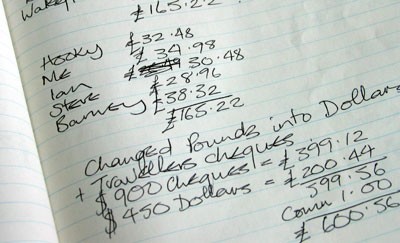 £165.22
Hooky £32.48
Me £34.98
Ian 30.48
Steve £28.96
Barney £38.32
£165.22
Changed Pounds into Dollars
+ Travellers cheques
$900 Cheques = £399.12
$450 Dollars = £200.44
599.56
Comm 1.00
£600.56